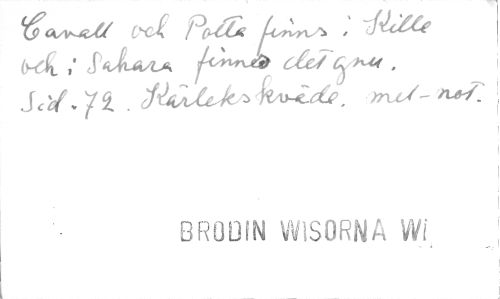 Cavall och Potta finns i Kille
och i Sahara finnes det gnu.
Sid. 72. Kärlekskväde. met-not.
BRODIN WISORNA Wi